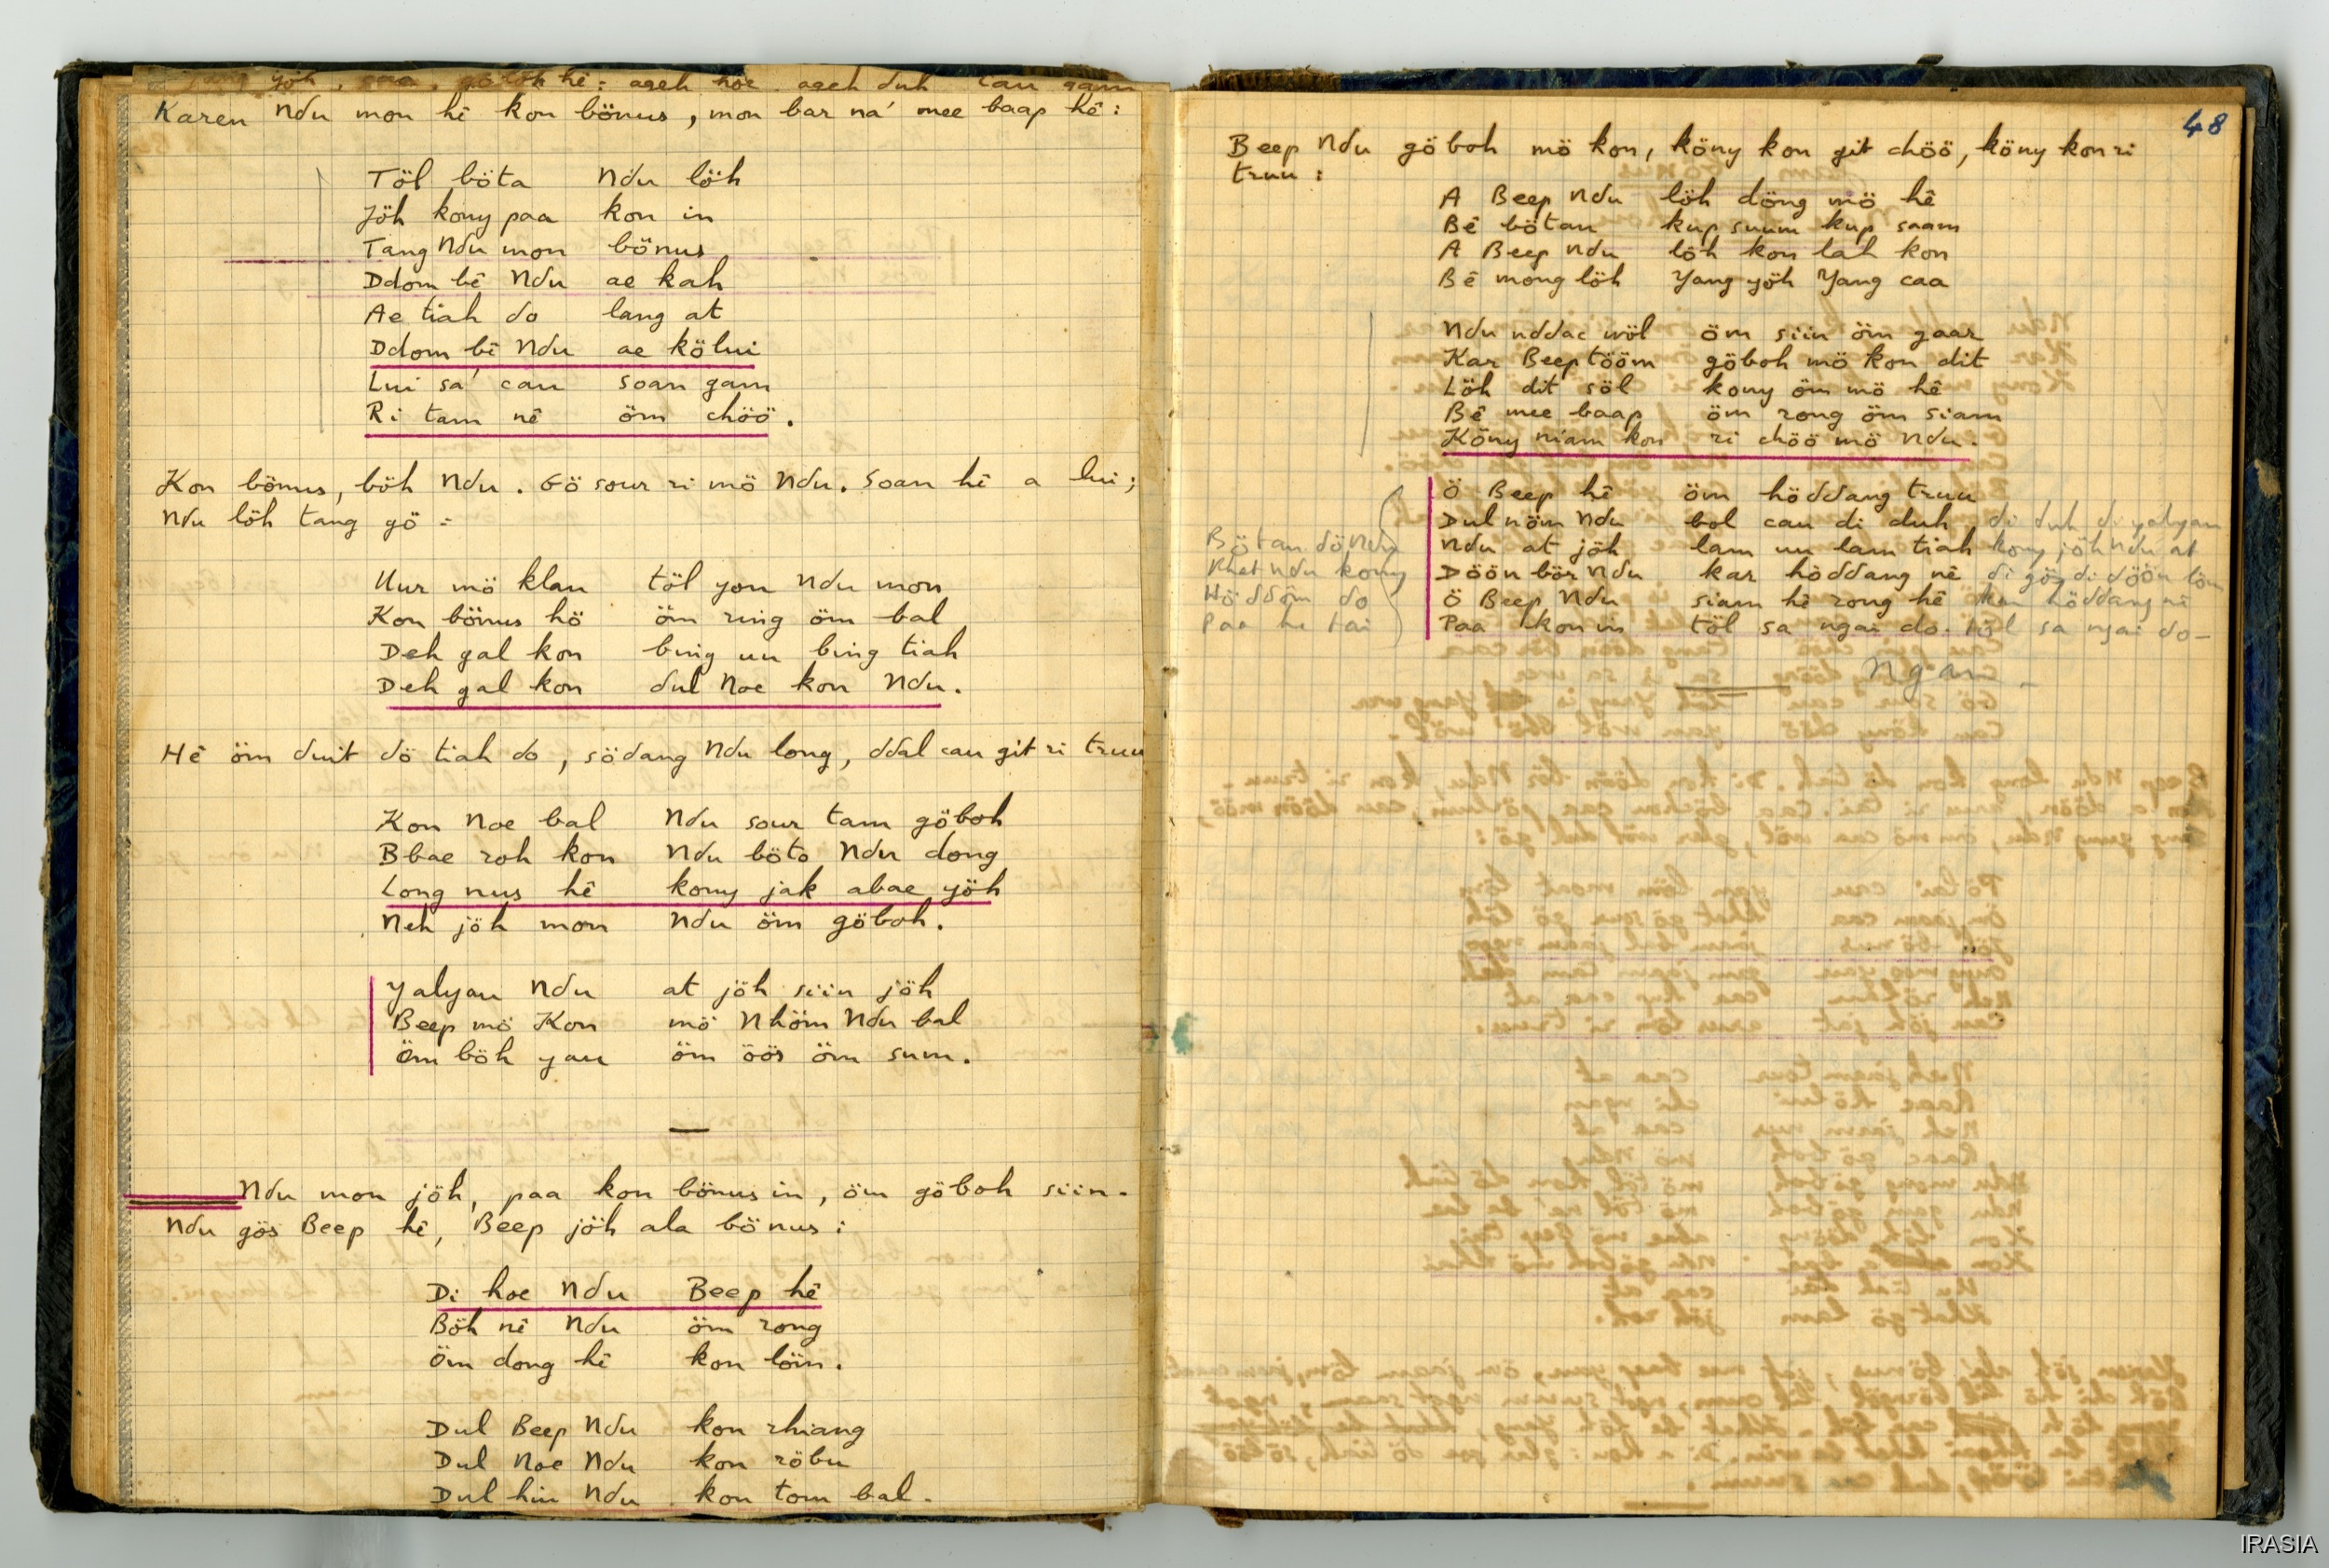 yöh, göboh hê: ageh hoe ageh duh can gam
Karen Ndu mon hê kon bönus, mon bar ná mee baap hê:
Töl böta Ndu löh
Jöh kony paa kon in
Tang Ndu mon bönus
Ddom bê Ndu ae kah
Ae tiah do lang at
Ddom bê Ndu ae kölui
Lui sá can soan gam
Ri tam nê öm chöö.
Kon bönus, böh Ndu. Gö sour ri mö Ndu. Soan hê a lui;
Ndu löh tang gö:
Uur mö klan töl yon Ndu mon
Kon bönus hö öm ring öm bal
Deh gal kon bing uu bing tiah
Deh gal kon dul Noe kon Ndu.
Hê öm duit dö tiah do, södang Ndu long, ddal can git ri truu
Kon Noe bal Ndu sour tam göboh
Bbae roh kon Ndu böto Ndu dong
Long nus hê kony jak abae yöh
Neh jöh mon Ndu öm göboh.
Yalyau Ndu at jöh siin jöh
Beep mö Kon mö Nhöm Ndu bal
Öm böh yau öm öös öm sum.
—
Ndu mon jöh, paa kon bönus in, öm göboh siin.
Ndu gös Beep hê, Beep jöh ala bönus:
Di hoe Ndu Beep hê
Böh nê Ndu öm rong
Öm dong hê kon löin.
Dul Beep Ndu kon rhiang
Dul Noe Ndu kon röbu
Dul hiu Ndu kon tom bal.
48
Beep Ndu göboh mö kon, köny kon git chöö, köny kon ri
truu:
A Beep Ndu löh döng mö hê
Bê bötau kup suum kup saam
A Beep Ndu löh kon lah kon
Bê mong löh Yang yöh Yang caa
Ndu nddac wöl öm siin öm gaar
Kar Beep tööm göboh mö kon dit
Löh dit söl kony öm mö hê
Bê mee baap öm rong öm siam
Köny niam kon ri chöö mö Ndu.
Ö Beep hê öm höddang truu
Dul nöm Ndu bol cau di duh di duh di yalyau
Bötau dö Ndu Ndu at jöh lam uu lam tiah kony jöh Ndu at
Khat Ndu kony Döön bör Ndu kar höddang nê di göy di döön löm
Höddöm do Ö Beep Ndu siam hê rong hê kon höddang nê
Paa hê tai Paa kon in töl sa ngai do. töl sa ngai do—
Ngan —